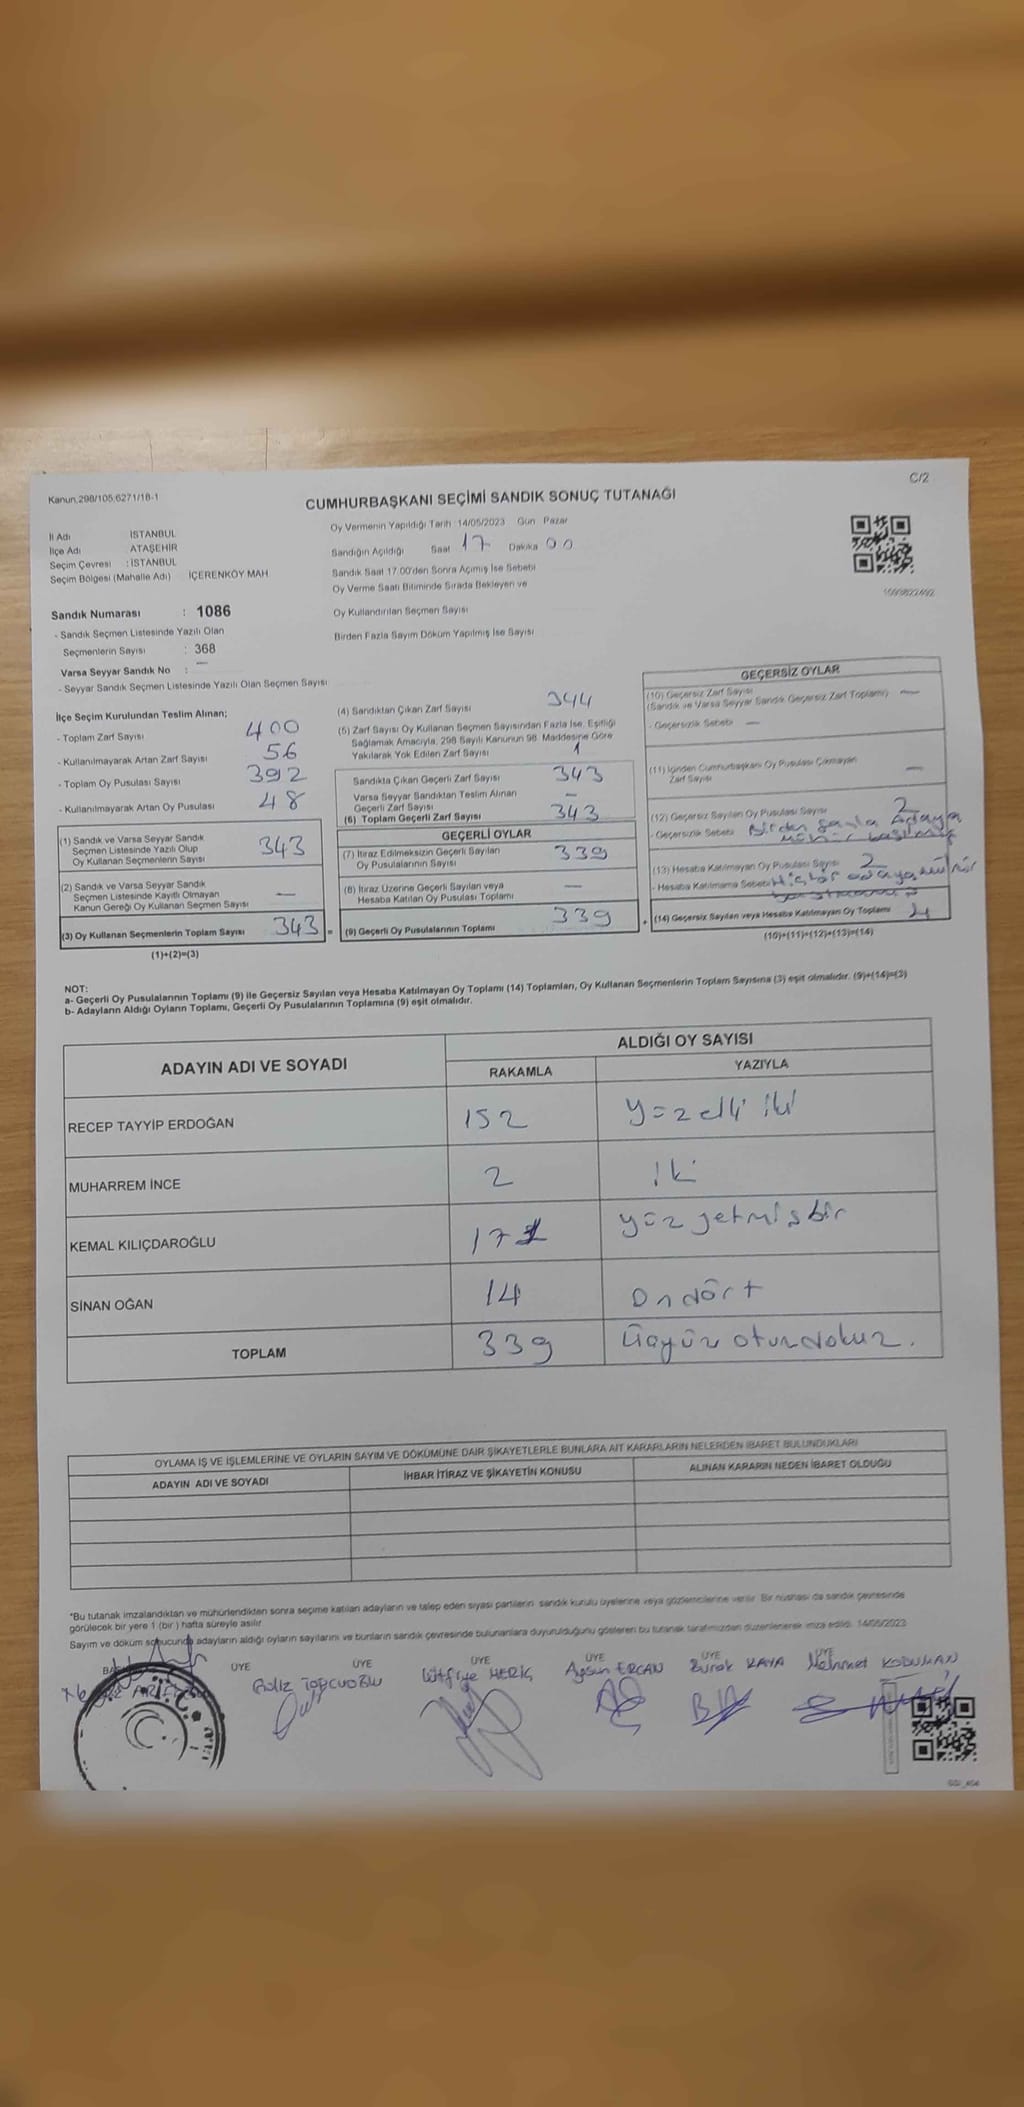 Kanun.298/105;6271/18-1
C/2
CUMHURBAŞKANI SEÇİMİ SANDIK SONUÇ TUTANAĞI
İl Adı İSTANBUL
İlçe Adı ATAŞEHİR
Seçim Çevresi : İSTANBUL
Seçim Bölgesi (Mahalle Adı) İÇERENKÖY MAH
Oy Vermenin Yapıldığı Tarih :14/05/2023 Gün Pazar
Sandığın Açıldığı Saat 17 Dakika 00
Sandık Saat 17.00'den Sonra Açılmış İse Sebebi
Oy Verme Saati Bitiminde Sırada Bekleyen ve
Oy Kullandırılan Seçmen Sayısı
Birden Fazla Sayım Döküm Yapılmış İse Sayısı
Sandık Numarası : 1086
- Sandık Seçmen Listesinde Yazılı Olan
Seçmenlerin Sayısı : 368
Varsa Seyyar Sandık No : —
- Seyyar Sandık Seçmen Listesinde Yazılı Olan Seçmen Sayısı
İlçe Seçim Kurulundan Teslim Alınan;
- Toplam Zarf Sayısı 400
- Kullanılmayarak Artan Zarf Sayısı 56
- Toplam Oy Pusulası Sayısı 392
- Kullanılmayarak Artan Oy Pusulası 48
(1) Sandık ve Varsa Seyyar Sandık
Seçmen Listesinde Yazılı Olup
Oy Kullanan Seçmenlerin Sayısı 343
(2) Sandık ve Varsa Seyyar Sandık
Seçmen Listesinde Kayıtlı Olmayan
Kanun Gereği Oy Kullanan Seçmen Sayısı —
(3) Oy Kullanan Seçmenlerin Toplam Sayısı 343 =
(1)+(2)=(3)
(4) Sandıktan Çıkan Zarf Sayısı 344
(5) Zarf Sayısı Oy Kullanan Seçmen Sayısından Fazla İse, Eşitliği
Sağlamak Amacıyla, 298 Sayılı Kanunun 98. Maddesine Göre
Yakılarak Yok Edilen Zarf Sayısı 1
Sandıkta Çıkan Geçerli Zarf Sayısı 343
Varsa Seyyar Sandıktan Teslim Alınan
Geçerli Zarf Sayısı —
(6) Toplam Geçerli Zarf Sayısı 343
GEÇERLİ OYLAR
(7) İtiraz Edilmeksizin Geçerli Sayılan
Oy Pusulalarının Sayısı 339
(8) İtiraz Üzerine Geçerli Sayılan veya
Hesaba Katılan Oy Pusulası Toplamı —
(9) Geçerli Oy Pusulalarının Toplamı 339 +
GEÇERSİZ OYLAR
(10) Geçersiz Zarf Sayısı —
(Sandık ve Varsa Seyyar Sandık Geçersiz Zarf Toplamı)
- Geçersizlik Sebebi —
(11) İçinden Cumhurbaşkanı Oy Pusulası Çıkmayan
Zarf Sayısı —
(12) Geçersiz Sayılan Oy Pusulası Sayısı 2
- Geçersizlik Sebebi Birden fazla Adaya
mühür basılmış
(13) Hesaba Katılmayan Oy Pusulası Sayısı 2
- Hesaba Katılmama Sebebi Hiçbir adaya mühür
(14) Geçersiz Sayılan veya Hesaba Katılmayan Oy Toplamı 4
(10)+(11)+(12)+(13)=(14)
NOT:
a- Geçerli Oy Pusulalarının Toplamı (9) ile Geçersiz Sayılan veya Hesaba Katılmayan Oy Toplamı (14) Toplamları, Oy Kullanan Seçmenlerin Toplam Sayısına (3) eşit olmalıdır. (9)+(14)=(3)
b- Adayların Aldığı Oyların Toplamı, Geçerli Oy Pusulalarının Toplamına (9) eşit olmalıdır.
ADAYIN ADI VE SOYADI
ALDIĞI OY SAYISI
RAKAMLA YAZIYLA
RECEP TAYYİP ERDOĞAN 152 yüz elli iki
MUHARREM İNCE 2 iki
KEMAL KILIÇDAROĞLU 171 yüz yetmiş bir
SİNAN OĞAN 14 Ondört
TOPLAM 339 üçyüz otuzdokuz.
OYLAMA İŞ VE İŞLEMLERİNE VE OYLARIN SAYIM VE DÖKÜMÜNE DAİR ŞİKAYETLERLE BUNLARA AİT KARARLARIN NELERDEN İBARET BULUNDUKLARI
ADAYIN ADI VE SOYADI İHBAR İTİRAZ VE ŞİKAYETİN KONUSU ALINAN KARARIN NEDEN İBARET OLDUĞU
*Bu tutanak imzalandıktan ve mühürlendikten sonra seçime katılan adayların ve talep eden siyasi partilerin sandık kurulu üyelerine veya gözlemcilerine verilir. Bir nüshası da sandık çevresinde
görülecek bir yere 1 (bir) hafta süreyle asılır.
Sayım ve döküm sonucunda adayların aldığı oyların sayılarını ve bunların sandık çevresinde bulunanlara duyurulduğunu gösteren bu tutanak tarafımızdan düzenlenerek imza edildi. 14/05/2023
ÜYE ÜYE ÜYE ÜYE ÜYE ÜYE
Filiz TOPCUOĞLU Lütfiye MERİÇ Aysun ERCAN Burak KAYA Mehmet KODUMAN